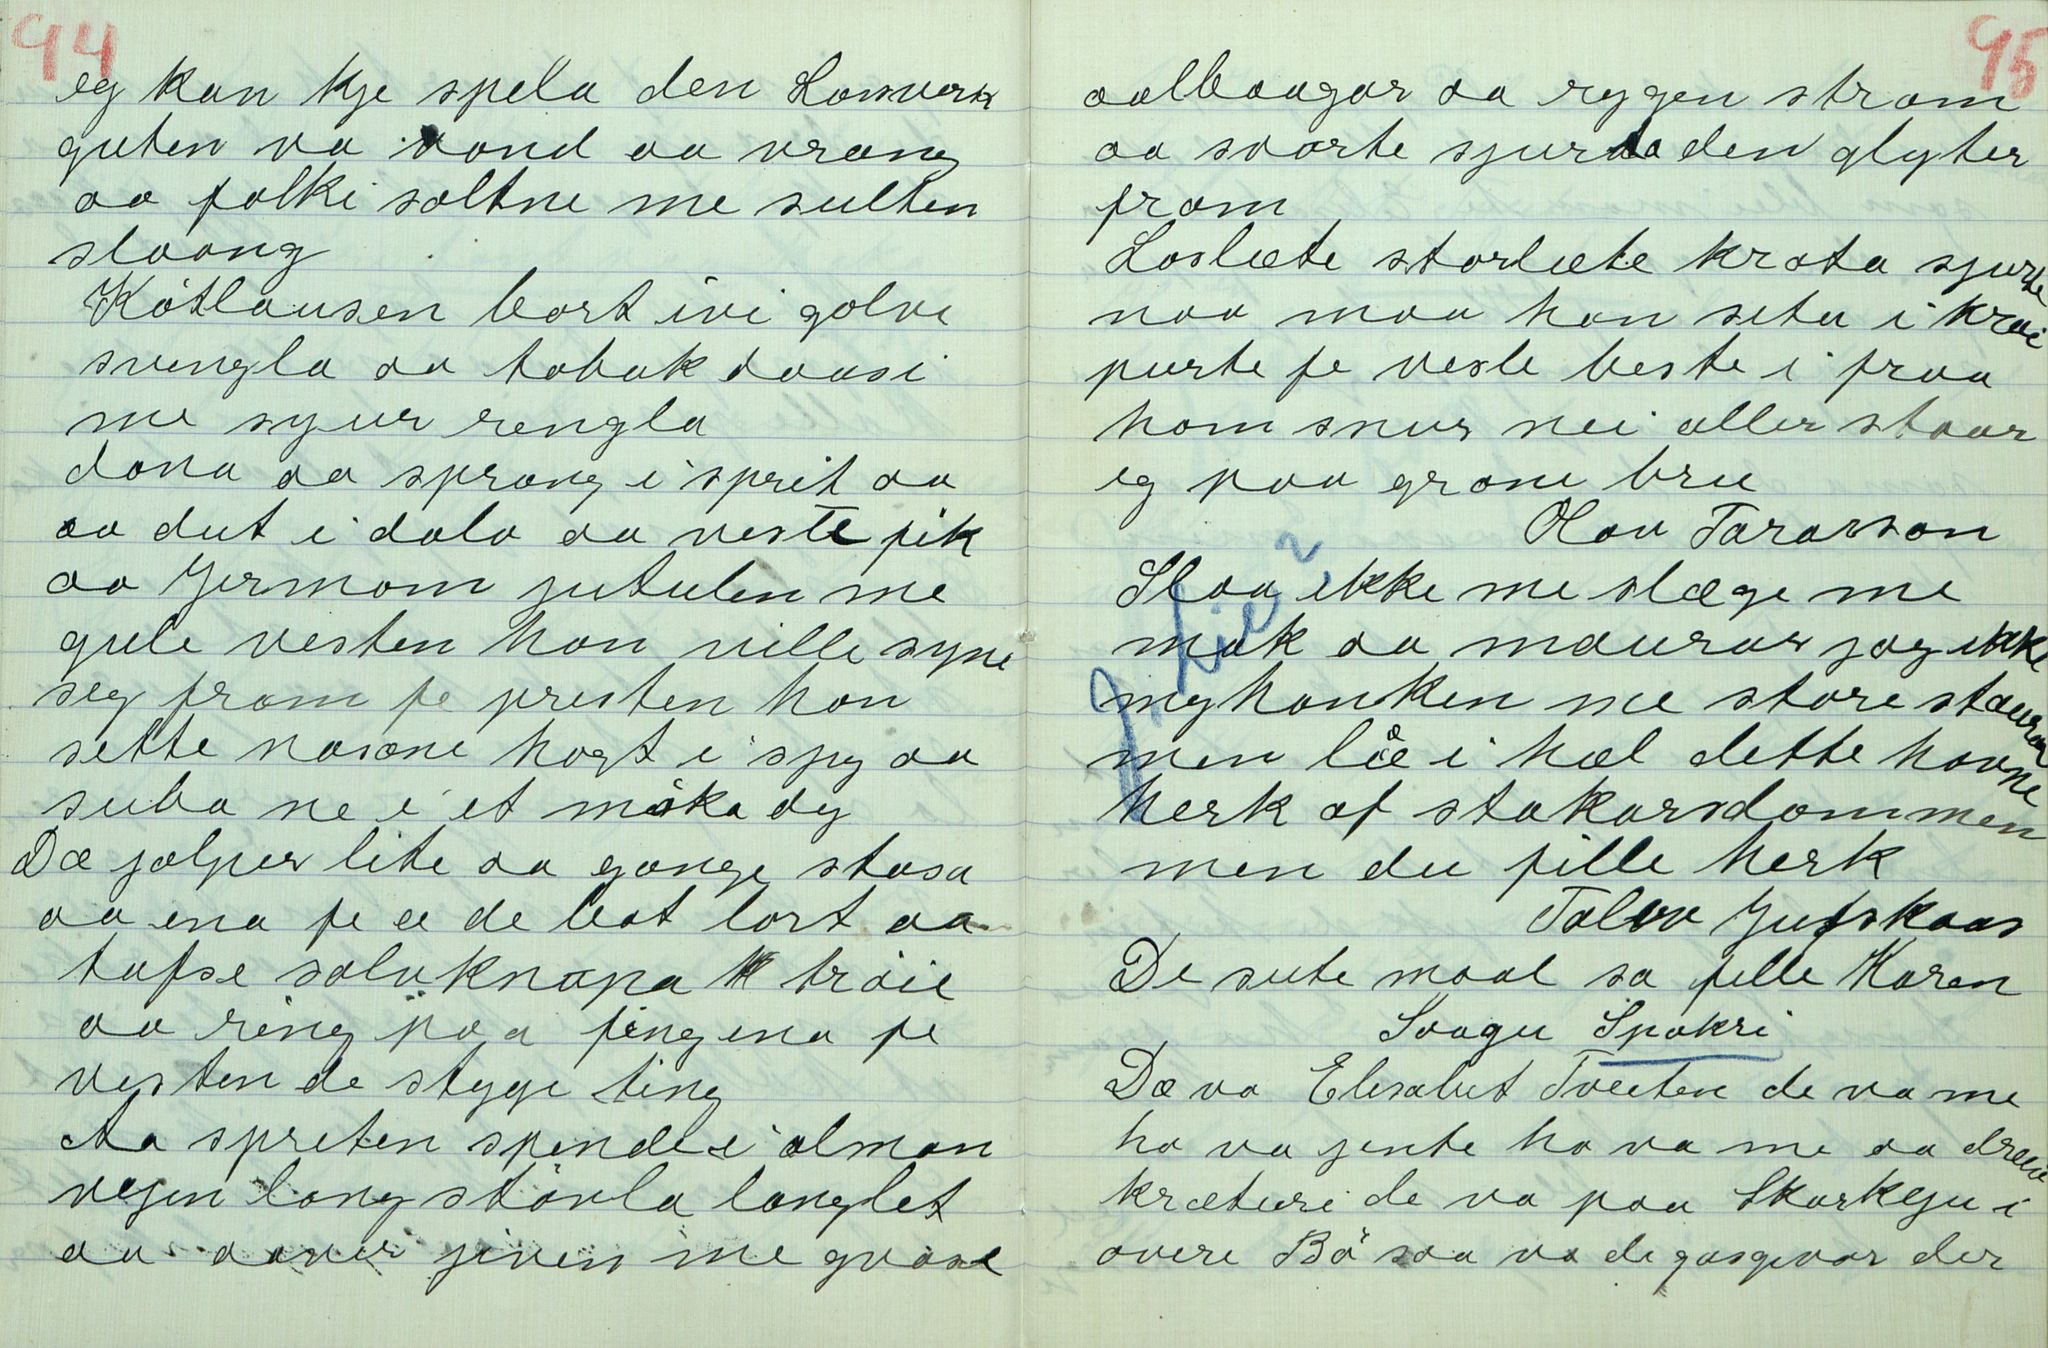 94
eg kan kje spela den Lonverk
guten va vond aa vrang
aa folki soltne me sulten
slaang
Kötlausen bort ivi golvi
svengla aa tobak daasi
me syur rengla
dona aa sprang i sprit aa
aa dut i dola aa veste fik
aa Jermom jutulen me
gule vesten han ville syne
seg fram fe presten han
sette nasane hogt i spy aa
suba ne i et möka dy
Dæ jalper lite aa gange stasa
aa ena fe ee de bot lort aa
tufse solvknapa K tröie
aa ring paa fingena fe
vesten de stygge ting
Aa spreten spende i alman
vegen lang stövla langlet
aa aaver given me gvase
95
aalbaagar aa ryggen stram
aa svarte sjurta den glyter
fram
Loslete storlete krota sjurte
naa maa han seta i kraai
purte fe vesle beste i fraa
hom snur nei aller staar
eg paa grone bru
Olav Tarasson
Slaa ikke me slæge me
mak aa maurar jag ikke
myhanken me store stauran
men låe i hæl dette havne
herk af stakarsdommen
men du fille herk
H. Lie?
Talov Jufskaas
De sute maal sa fille Karen
Saagu Spakri
Dæ va Elesabet Tveeten de va me
ho va jente ho va me aa dreiv
kræturi de va paa Skarkeju i
overe Bö saa va de gasgevar der